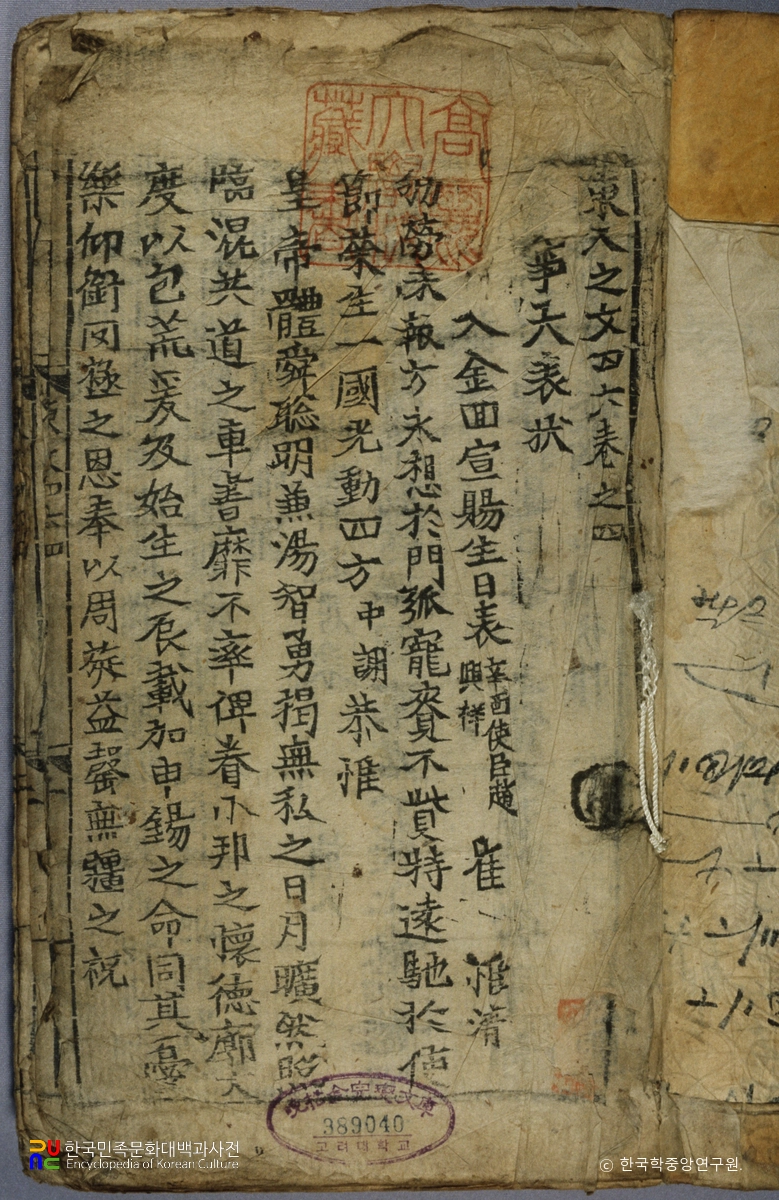 東人之文四六卷之四
事大表狀
入金回宣賜生日表 辛酉使臣趙興祥 崔 惟淸
劬勞未報方永想於門弧寵賚不貲特遠馳於使
節榮生一國光動四方中謝恭惟
皇帝體舜聦明兼湯智勇揭無私之日月曠然照
臨混共道之車書靡不率俾眷小邦之懷德廓大
度以包荒爰及始生之辰載加申錫之命同其憂
樂仰銜罔極之恩奉以周旋益罄無疆之祝
389040
고려대학교
한국민족문화대백과사전
Encyclopedia of Korean Culture
© 한국학중앙연구원